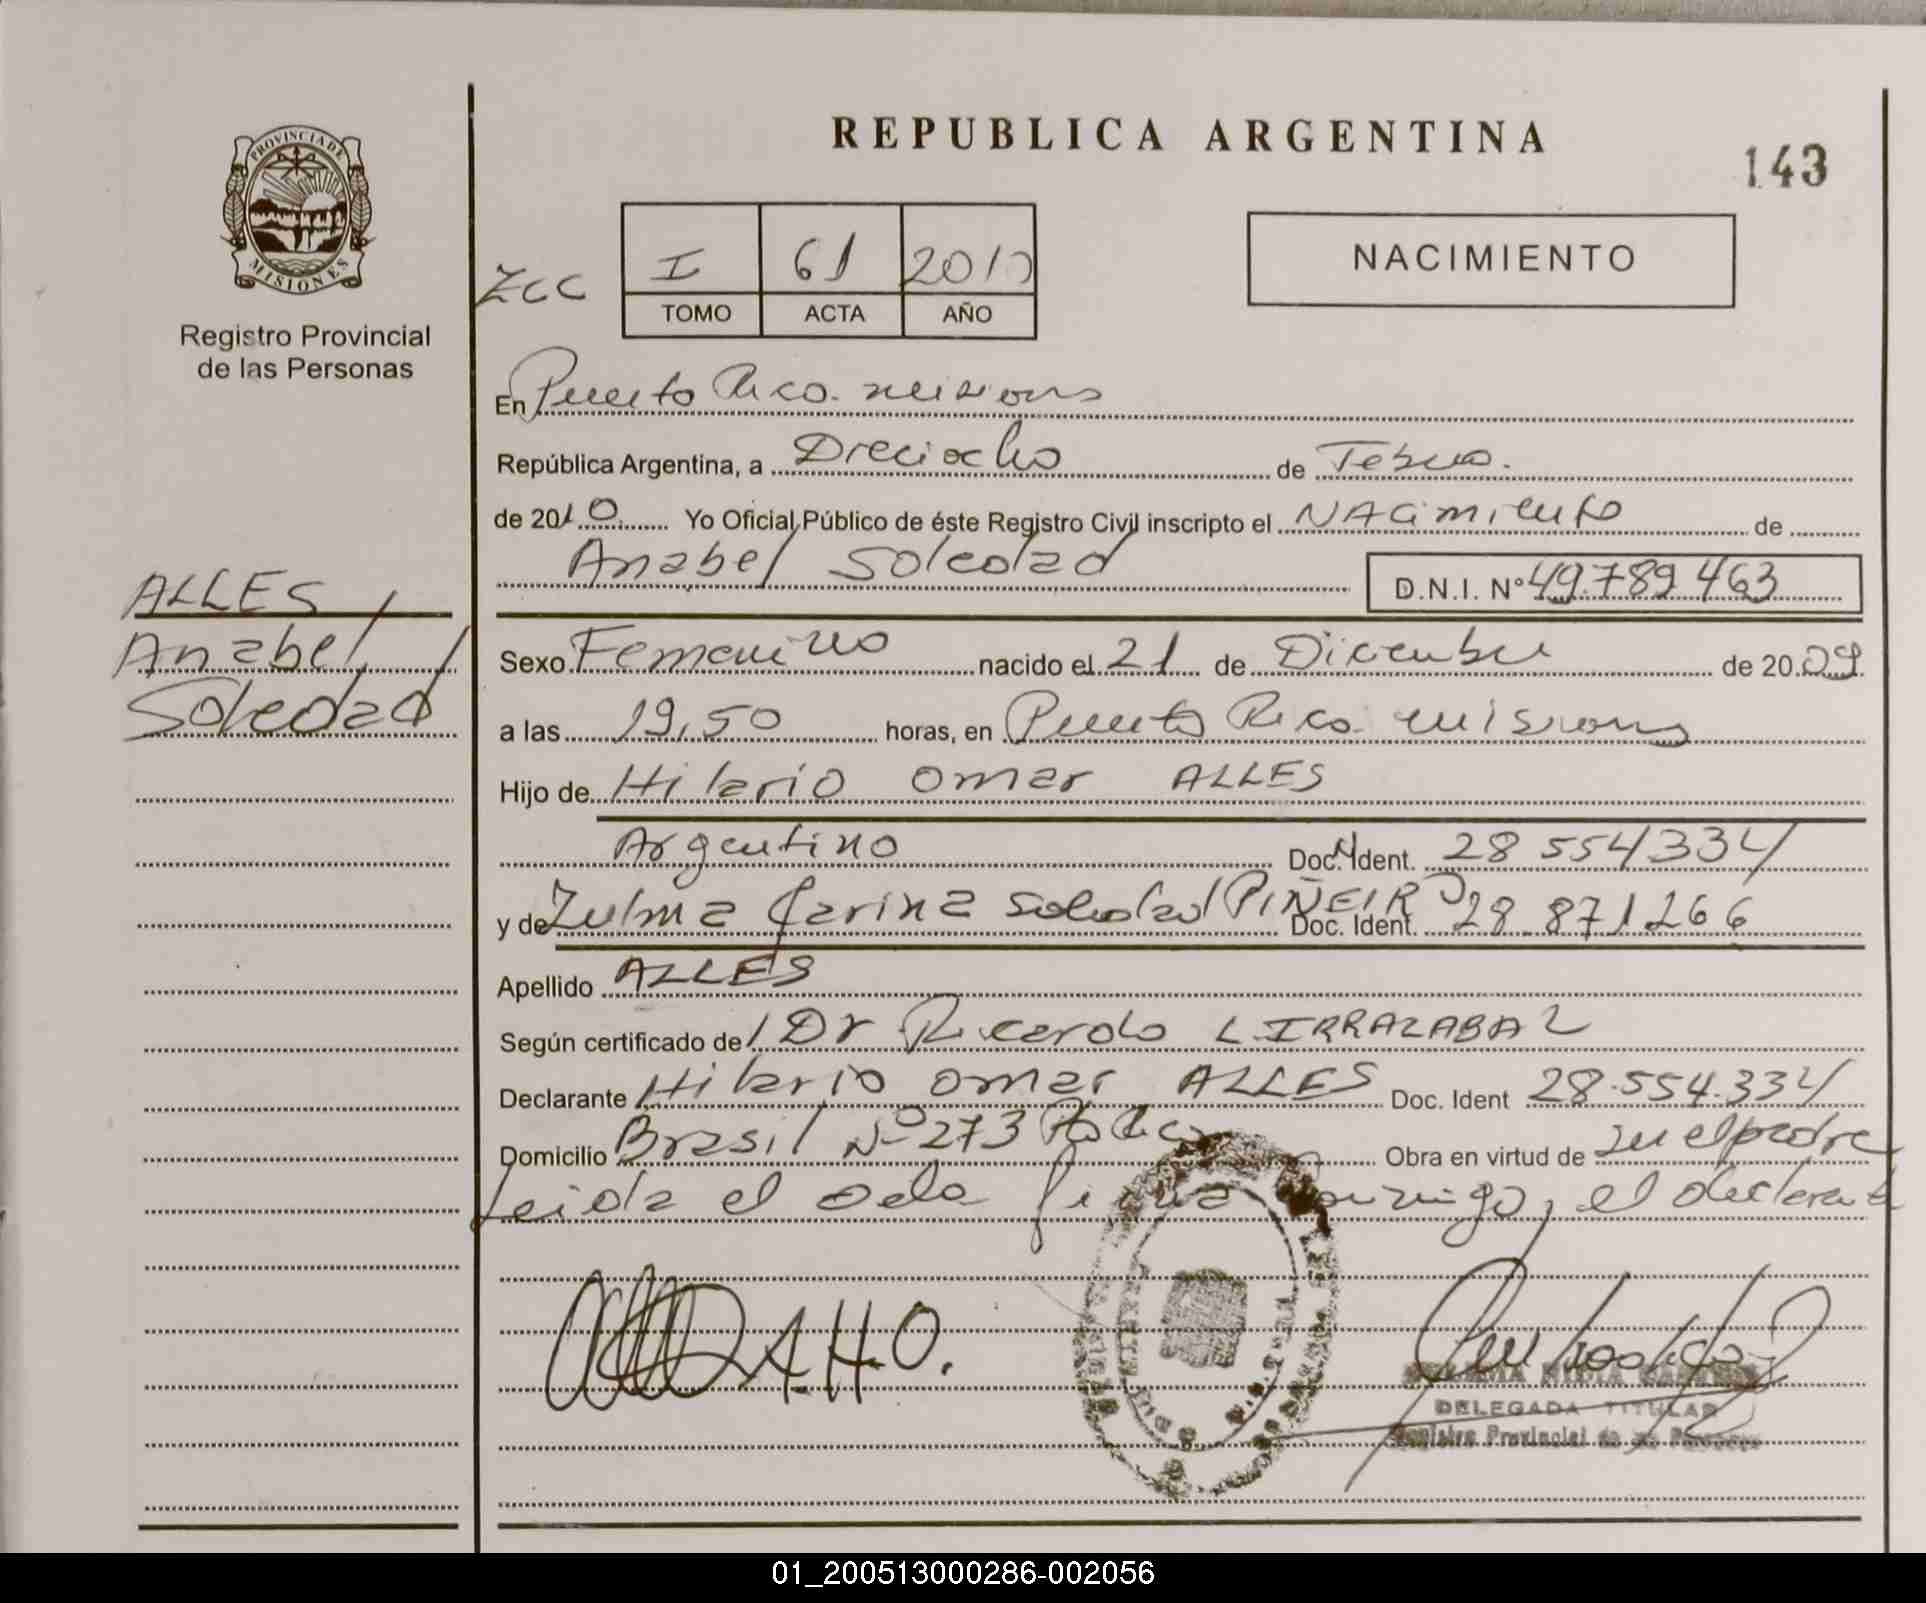 REPUBLICA ARGENTINA
143
PROVINCIA DE
MISIONES
Registro Provincial
de las Personas
I 61 2010
TOMO ACTA AÑO
NACIMIENTO
En Puerto Rico. misiones
República Argentina, a Dieciocho de Febrero.
de 2010 Yo Oficial Público de éste Registro Civil inscripto el NACimiento de
Anabel Soledad
D.N.I. Nº 49.789463
ALLES
Anabel
Soledad
Sexo Femenino nacido el 21 de Diciembre de 2009
a las 19,50 horas, en Puerto Rico. misiones
Hijo de Hilario Omar ALLES
Argentino Doc. Ident. 28 554334
y de Zulma Carina Soledad PIÑEIRO Doc. Ident. 28.871266
Apellido ALLES
Según certificado de Dr Ricardo L IRRAZABAL
Declarante Hilario Omar ALLES Doc. Ident 28.554.334
Domicilio Brasil Nº 273 Pto Rico Obra en virtud de su el padre
Leida el acta firma conmigo, el declarante
A.H.O.
DELEGADA TITULAR
Registro Provincial de las Personas
01_200513000286-002056